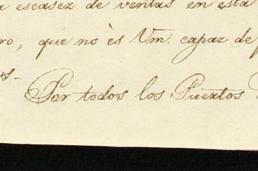 escasez de ventas en esta
ro, que no ès Vm. capaz de
es-
Por todos los Puertos